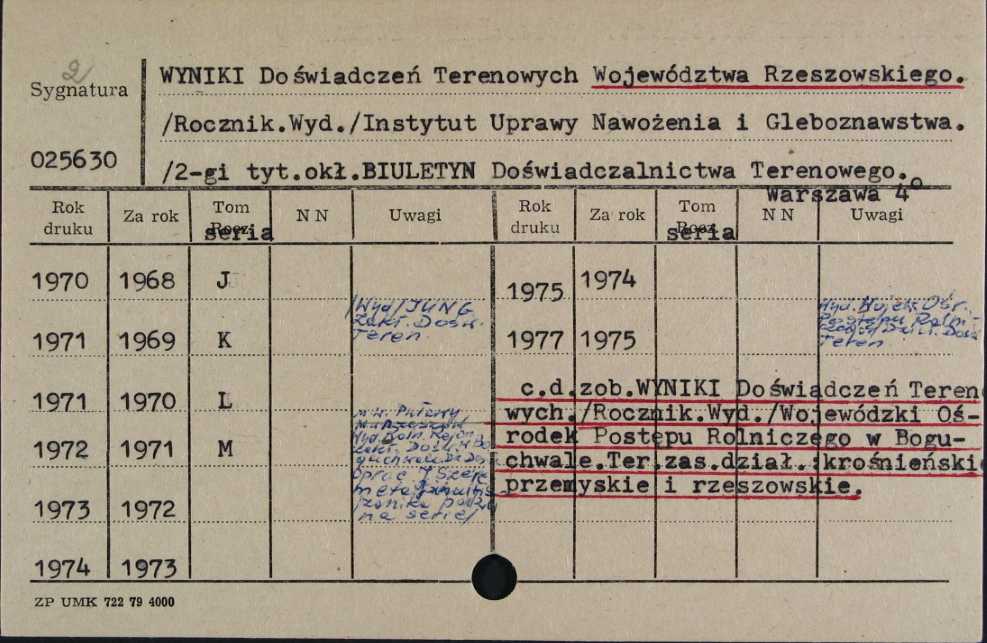 2
Sygnatura
025630
WYNIKI Doświadczeń Terenowych Województwa Rzeszowskiego.
/Rocznik.Wyd./Instytut Uprawy Nawożenia i Gleboznawstwa.
/2-gi tyt.okł.BIULETYN Doświadczalnictwa Terenowego.
Warszawa 4°
Rok druku Za rok Tom Rocz. seria NN Uwagi Rok druku Za rok Tom Rocz. seria NN Uwagi
1970 1968 J 1975 1974
/Wyd/JUNG
Zakł. Dośw.
Teren.
Wyd. Wojew. Ośr.
Postępu Roln.
Teren
1971 1969 K 1977 1975
1971 1970 L
c.d.zob.WYNIKI Doświadczeń Tereno
wych./Rocznik.Wyd./Wojewódzki Oś-
rodek Postępu Rolniczego w Bogu-
chwale.Ter.zas.dział.:krośnieńskie
przemyskie i rzeszowskie.
Puławy
1972 1971 M
Zakł. Dośw.
Oprac
na serie/
1973 1972
1974 1973
ZP UMK 722 79 4000